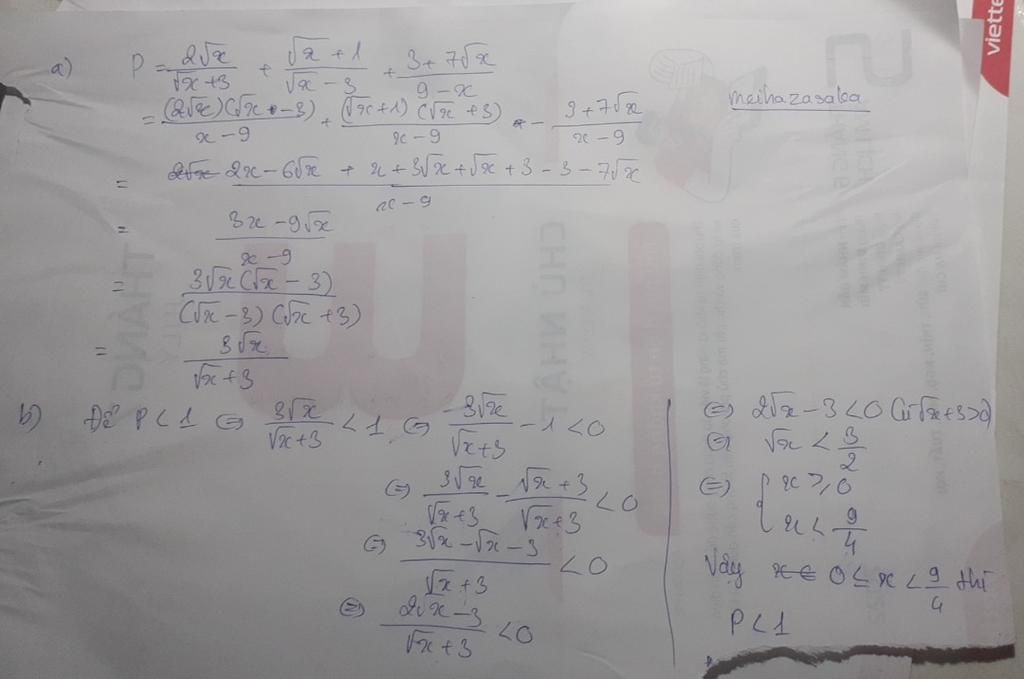 a) P = 2√x/(√x+3) + (√x+1)/(√x-3) + (3+7√x)/(9-x)
= (2√x)(√x-3)/(x-9) + (√x+1)(√x+3)/(x-9) - (3+7√x)/(x-9)
meihazasaka
= (2x-6√x + x+3√x+√x+3-3-7√x)/(x-9)
= (3x-9√x)/(x-9)
= 3√x(√x-3)/((√x-3)(√x+3))
= 3√x/(√x+3)
b) Để P<1 ⇔ 3√x/(√x+3) < 1 ⇔ 3√x/(√x+3) - 1 < 0
⇔ 3√x/(√x+3) - (√x+3)/(√x+3) < 0
⇔ (3√x-√x-3)/(√x+3) < 0
⇔ (2√x-3)/(√x+3) < 0
⇔ 2√x-3<0 (vì √x+3>0)
⇔ √x < 3/2
⇔ { x ≥ 0
x < 9/4
Vậy 0 ≤ x < 9/4 thì
P<1
viette